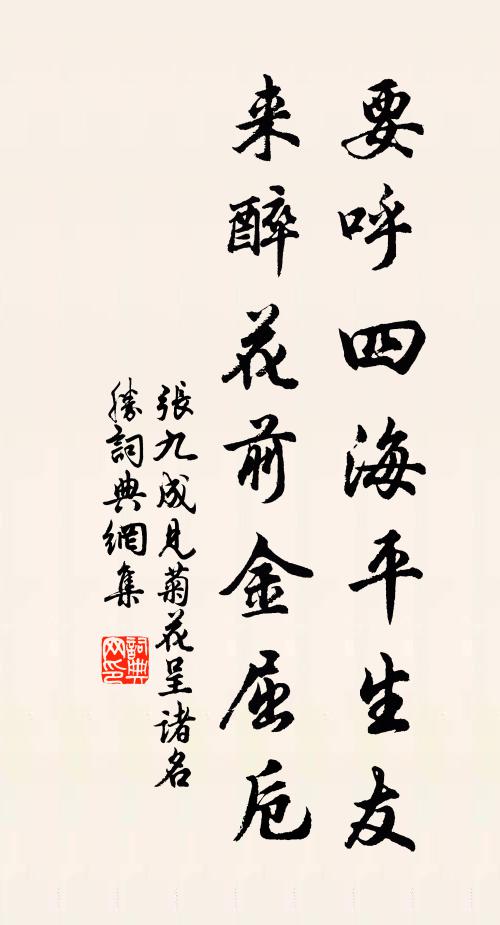 要呼四海平生友
来醉花前金屈卮
張九成見菊花呈诸名
勝詞典網集
詞典
网印